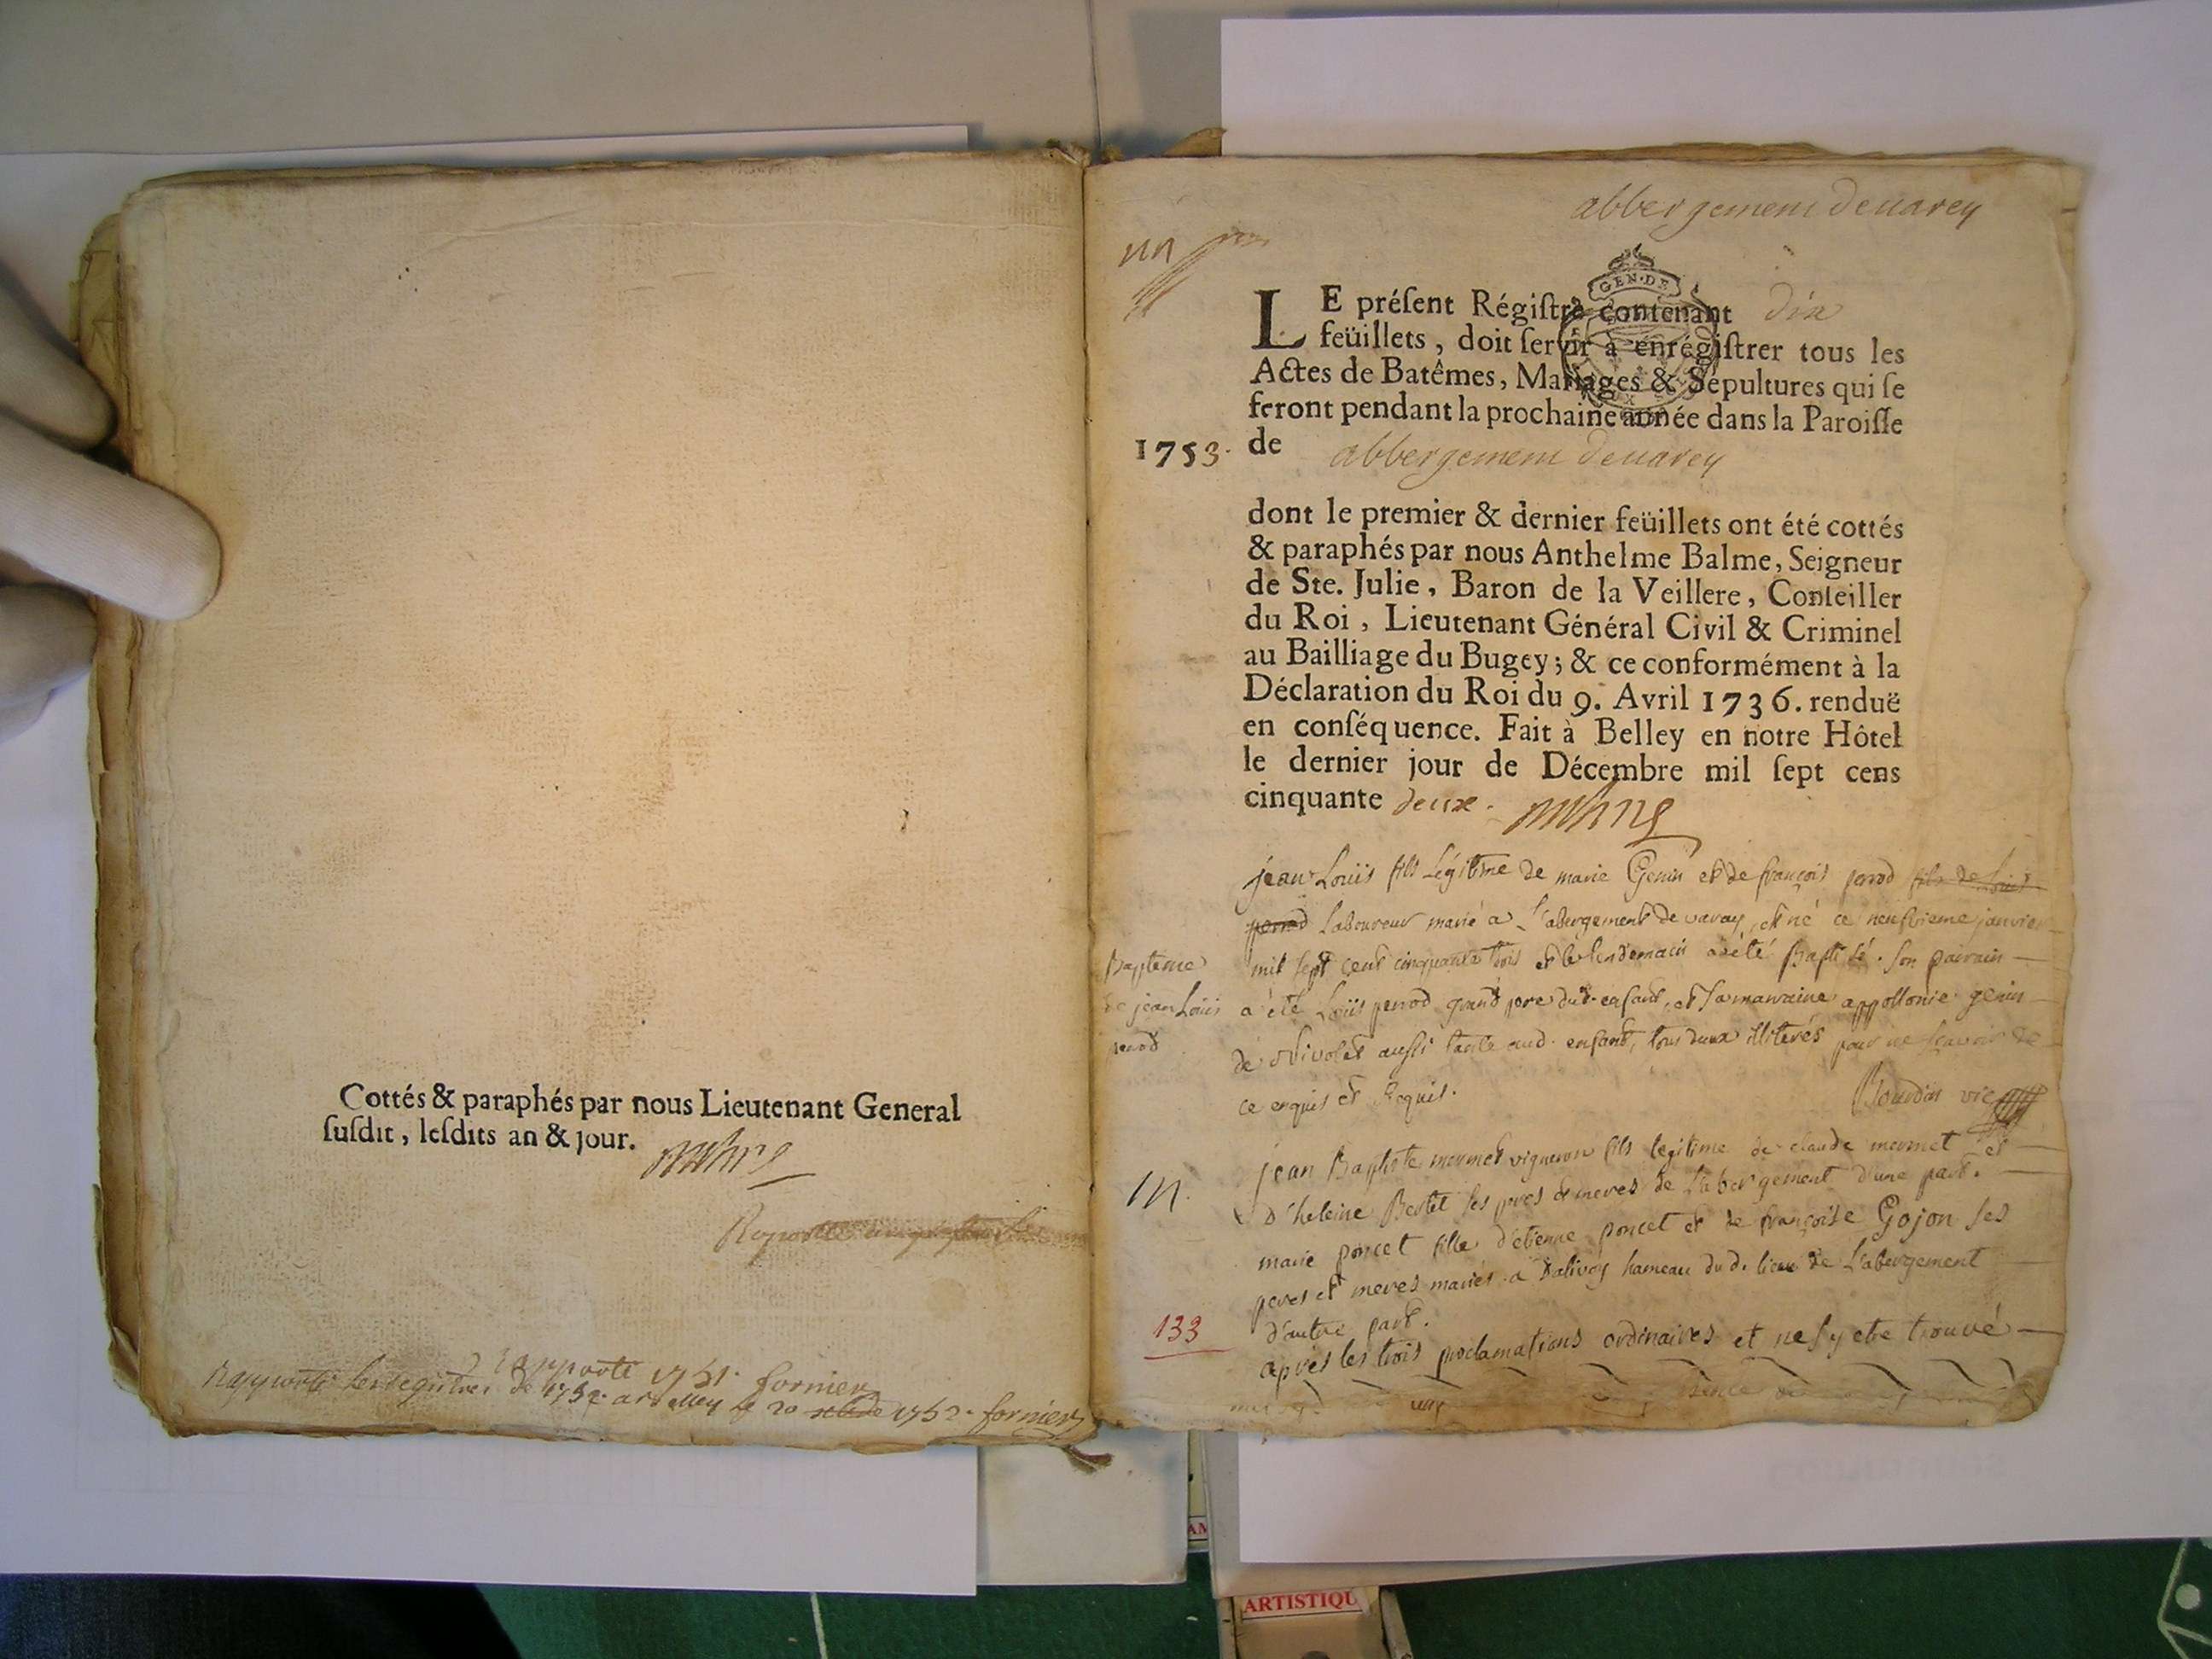 Cottés & paraphés par nous Lieutenant General
susdit, lesdits an & jour.
rapporté 1751. fornier
Rapporté les registres de 1752 a Belley le 20 1752. fornier
abbergement devarey
un
GEN. DE
LE présent Régistre contenant dix
feüillets, doit servir à enrégistrer tous les
Actes de Batêmes, Mariages & Sépultures qui se
feront pendant la prochaine année dans la Paroisse
1753. de abbergement devarey
dont le premier & dernier feüillets ont été cottés
& paraphés par nous Anthelme Balme, Seigneur
de Ste. Julie, Baron de la Veillere, Conseiller
du Roi, Lieutenant Général Civil & Criminel
au Bailliage du Bugey; & ce conformément à la
Déclaration du Roi du 9. Avril 1736. renduë
en conséquence. Fait à Belley en notre Hôtel
le dernier jour de Décembre mil sept cens
cinquante deux.
jean Loüis fils Légitime de marie Genin et de françois perrod fils de Loüis
perrod Laboureur marié a L'abergement de varay, est né ce neufvieme janvier
Bapteme
de jean Loüis
perrod
mil sept cent cinquante trois et le lendemain a été Baptisé. son pairain
a été Loüis perrod grand pere dud. enfant, et sa marraine appollonie genin
de aussi tante aud. enfant, tous deux illiterés pour ne sçavoir de
ce enquis et Requis. Bourdin vic
m.
jean Baptiste mermet vigneron fils legitime de claude mermet et
d'heleine Bertet ses peres et meres de L'abergement d'une part.
marie poncet fille d'étienne poncet et de françoise Gojon ses
peres et meres mariés a Dalivoy hameau du d. lieu de L'abergement
133
d'autre part.
après les trois proclamations ordinaires et ne s'y etre trouvé
ARTISTIQU